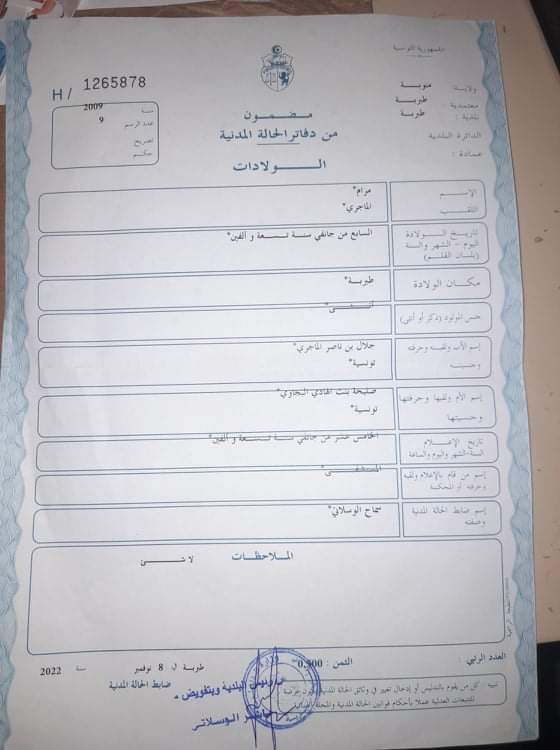 الجمهورية التونسية
H/ 1265878
ولاية: منوبة
معتمدية: طبربة
بلدية: طبربة
الدائرة البلدية
عمادة:
سنة 2009
عدد الرسم 9
تصريح
حكم
مضمون
من دفاتر الحالة المدنية
الـولادات
الإسم مرام*
اللقب الماجري*
تاريخ الولادة السابع من جانفي سنة تسعة و ألفين*
اليوم - الشهر والسنة
(بلسان القلم)
مكان الولادة طبربة*
جنس المولود (ذكر أو أنثى) أنثى*
إسم الأب ولقبه وحرفته جلال بن ناصر الماجري*
وجنسيته تونسية*
إسم الأم ولقبها وحرفتها صليحة بنت الهادي البجاوي*
وجنسيتها تونسية*
تاريخ الإعلام الخامس عشر من جانفي سنة تسعة و ألفين*
السنة-الشهر واليوم والساعة
إسم من قام بالإعلام ولقبه المستشفى*
وحرفته أو المحكمة
إسم ضابط الحالة المدنية سماح الوسلاتي*
وصفته
الملاحظات
لا شئ
العدد الرتبي :
الثمن : 0,500
طبربة في 8 نوفمبر سنة 2022
ضابط الحالة المدنية
تنبيه : كل من يقوم بالتدليس أو إدخال تغيير في وثائق الحالة المدنية يكون عرضة
للتتبعات العدلية عملا بأحكام قوانين الحالة المدنية والمجلة الجنائية
عن رئيس البلدية وبتفويض
الوسلاتي